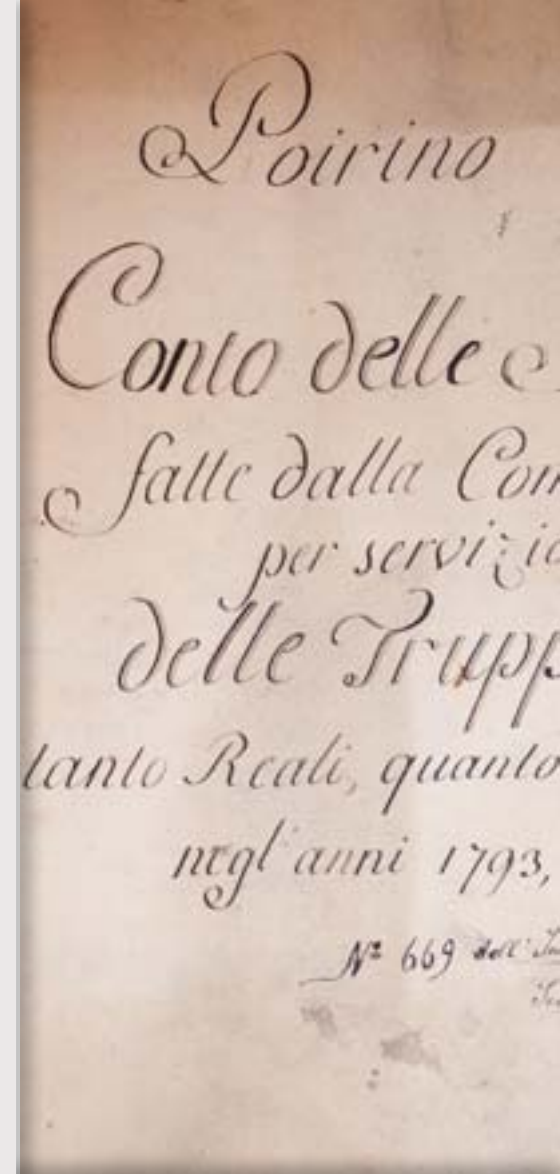 Poirino
Conto delle
fatte dalla Com
per servizio
delle Trupp
tanto Reali, quanto
negl'anni 1793,
Nº 669 dell'